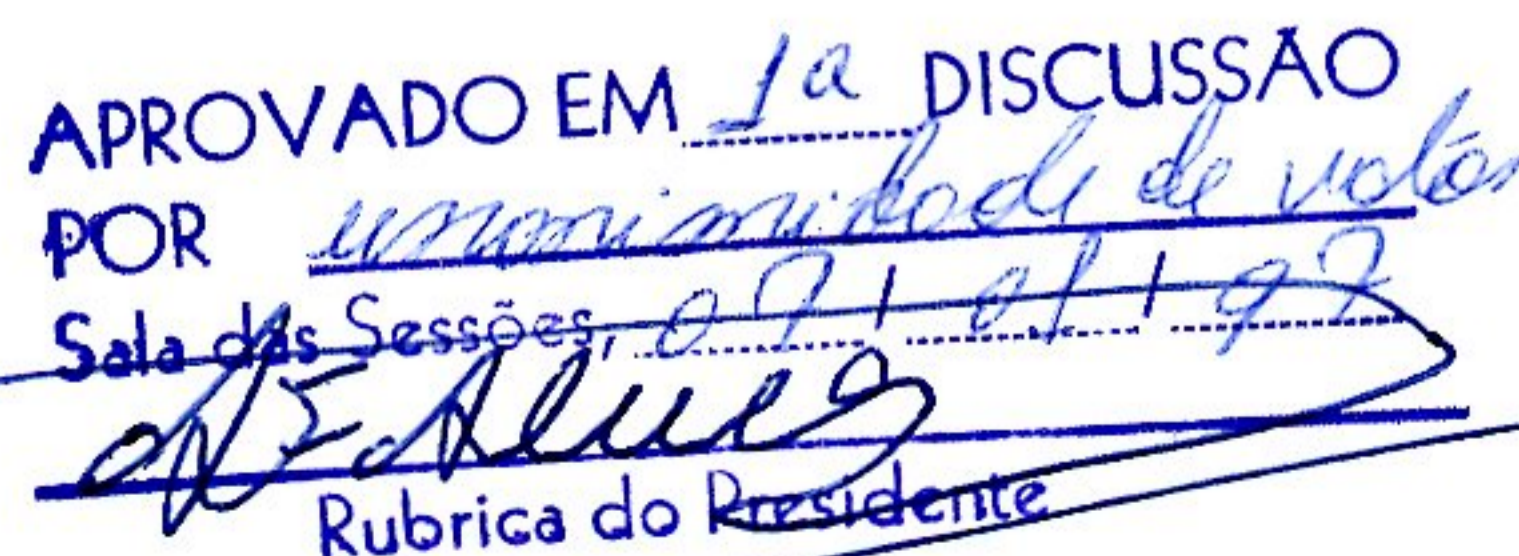 APROVADO EM 1a DISCUSSÃO
POR unanimidade de votos
Sala das Sessões, 07/01/97
Rubrica do Presidente